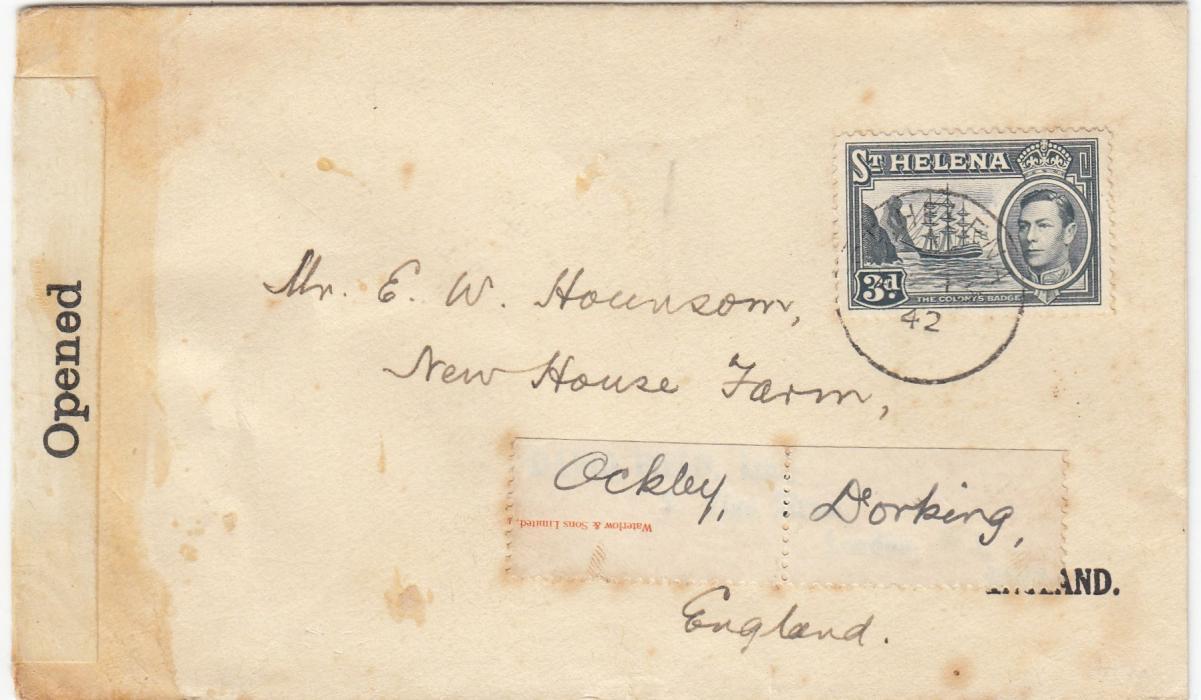 Opened
ST HELENA
3d
THE COLONY'S BADGE
42
Mr. E. W. Hounsom,
New House Farm,
Ockley, Dorking,
Waterlow & Sons Limited.
England.